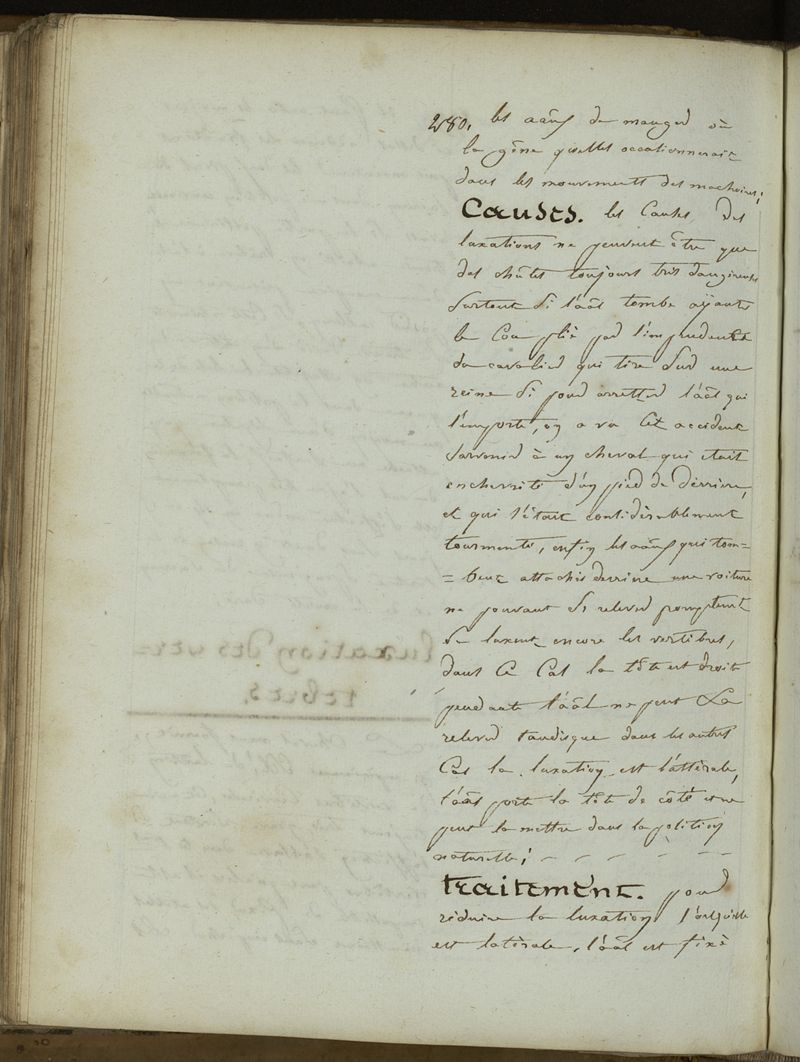 280. les aãux de manger où
la gêne qu'elles occationnerait
dans les mouvements des machoires;
Causes. les Causes des
luxations ne peuvent être que
des chûtes toujours très dangireuses
surtout si l'aãl tombe aÿant
le Cou plié par l'imprudence
du cavalier qui tire sur une
reine si pour arretter l'aãl qui
l'emporte, on a vu Cet accident
survenir à un cheval qui etait
enchevétré d'un pied de derriere,
et qui s'était considèrablement
tourmenté, enfin les aãux qui tom=
=bent attachés derriere une voiture
ne pouvant se relever promptement
se luxent encore les vertebres,
dans Ce Cas la tête est droite
pendante l'aãl ne peut La
relever tandisque dans les autres
Cas la luxation est lattérale,
l'aãl porte la tête de côté et ne
peut la mettre dans la position
naturelle;
traitement. pour
réduire la luxation lorsqu'elle
est latérale, l'aãl est fixé
luxation des ver=
tebres.